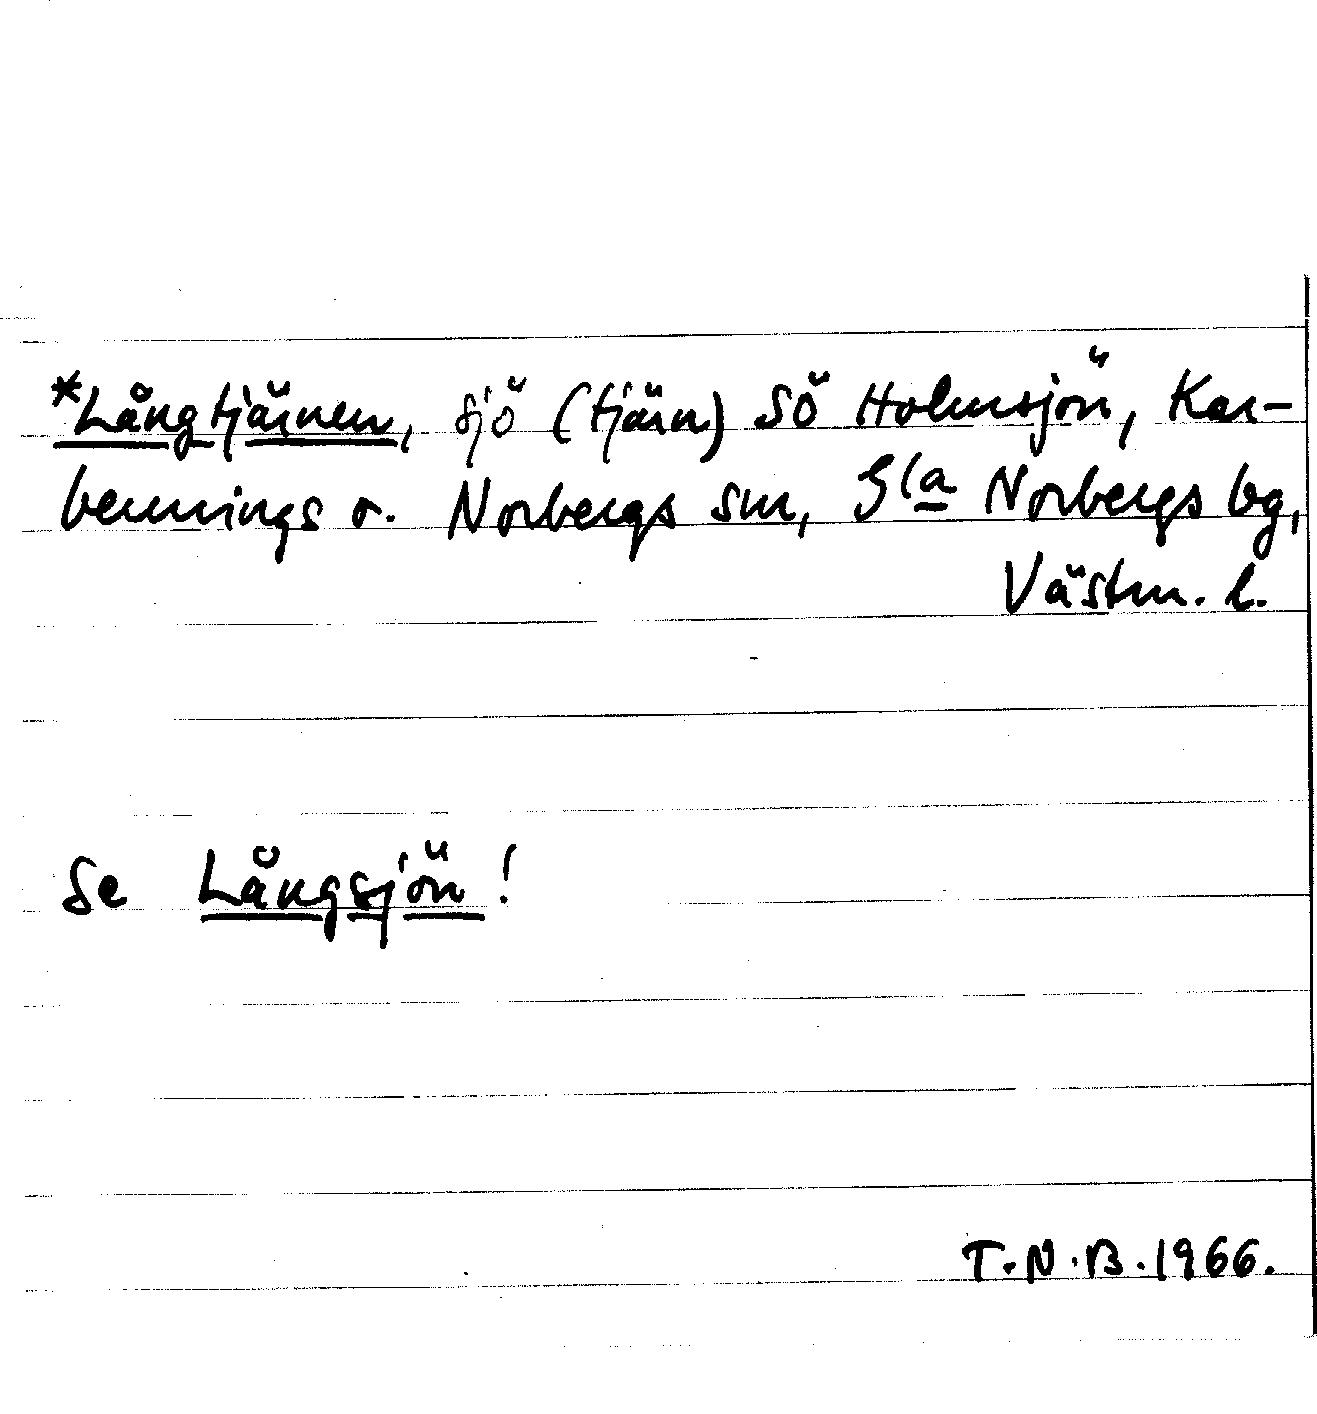 *Långtjärnen, sjö (tjärn) SÖ Holmsjön, Kar-
bennings o. Norbergs snr, Gla Norbergs bg,
Västm. l.
Se Långsjön!
T.N.B. 1966.